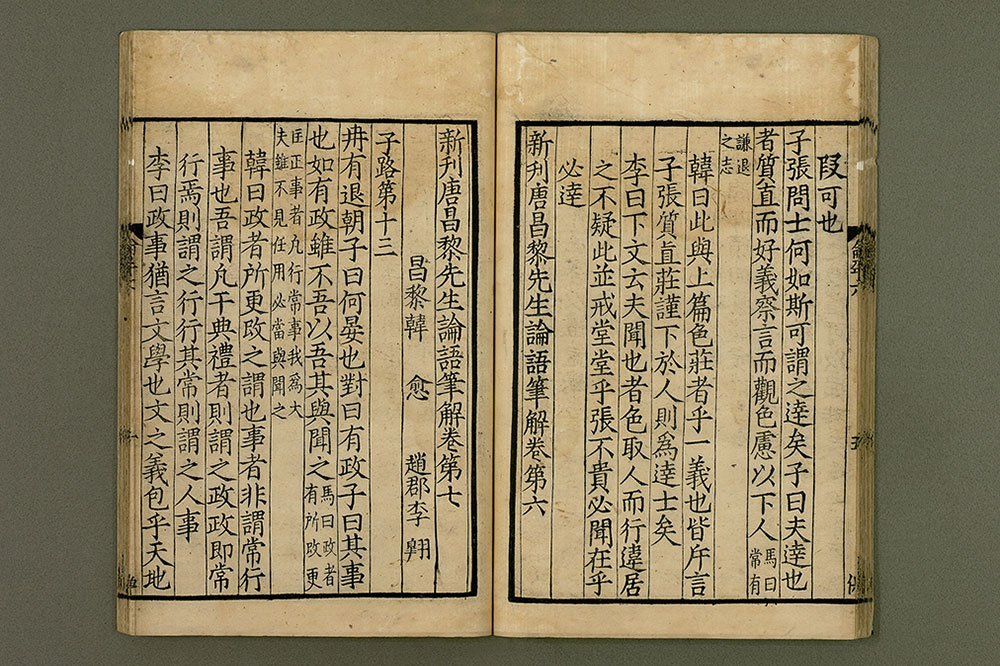 叚可也
子張問士何如斯可謂之達矣子曰夫達也
者質直而好義察言而觀色慮以下人馬曰常有
謙退之志
韓曰此與上篇色莊者乎一義也皆斥言
子張質直莊謹下於人則為達士矣
李曰下文云夫聞也者色取人而行違居
之不疑此並戒堂堂乎張不貴必聞在乎
必達
新刊唐昌黎先生論語筆解卷第六
新刊唐昌黎先生論語筆解卷第七
昌黎韓愈 趙郡李翱
子路第十三
冉有退朝子曰何晏也對曰有政子曰其事
也如有政雖不吾以吾其與聞之馬曰政者有所改更
匡正事者凡行常事我為大夫雖不見任用必當與聞之
韓曰政者所更改之謂也事者非謂常行
事也吾謂凡干典禮者則謂之政政即常
行焉則謂之行行其常則謂之人事
李曰政事猶言文學也文之義包乎天地